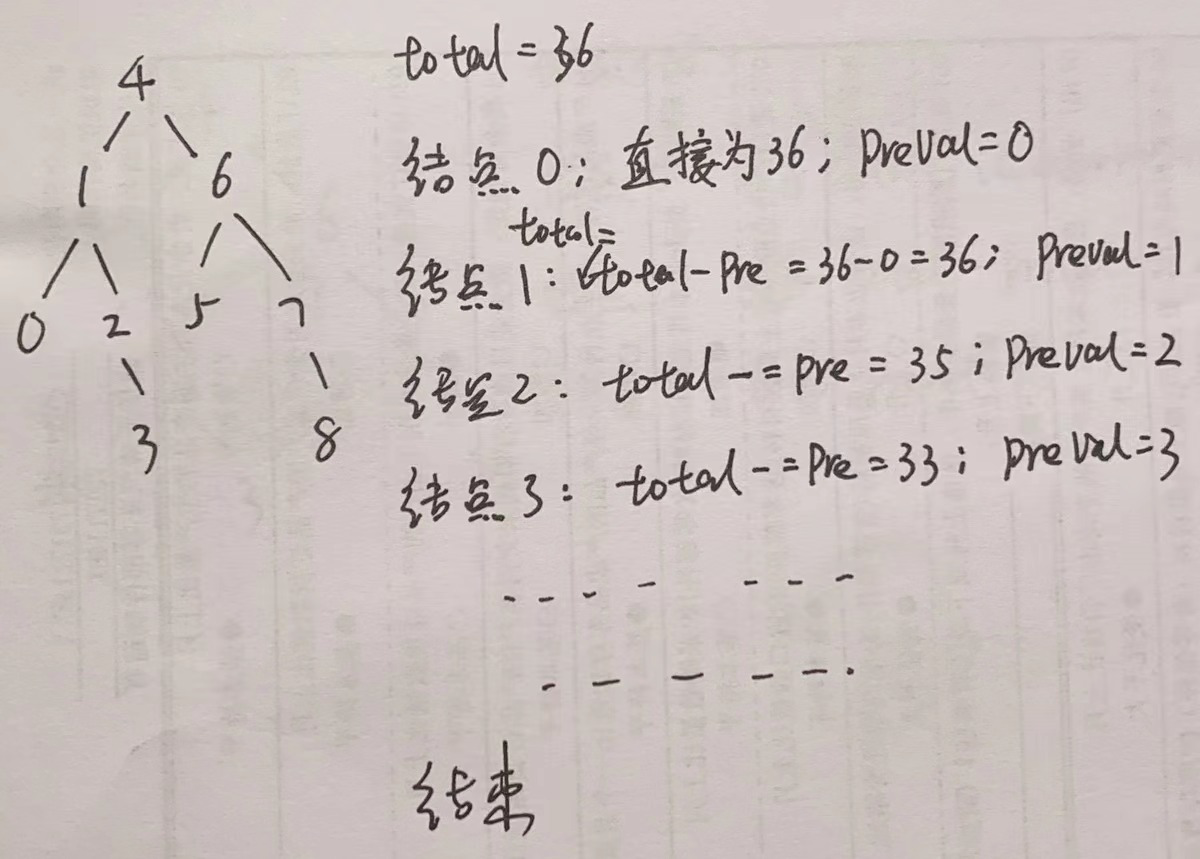 total = 36
4
1 6
0 2 5 7
3 8
结点 0; 直接为36; PreVal=0
total=
结点 1: total-Pre = 36-0=36; Preval=1
结点2: total -= pre = 35; Preval=2
结点 3: total -= Pre = 33; preval=3
结束